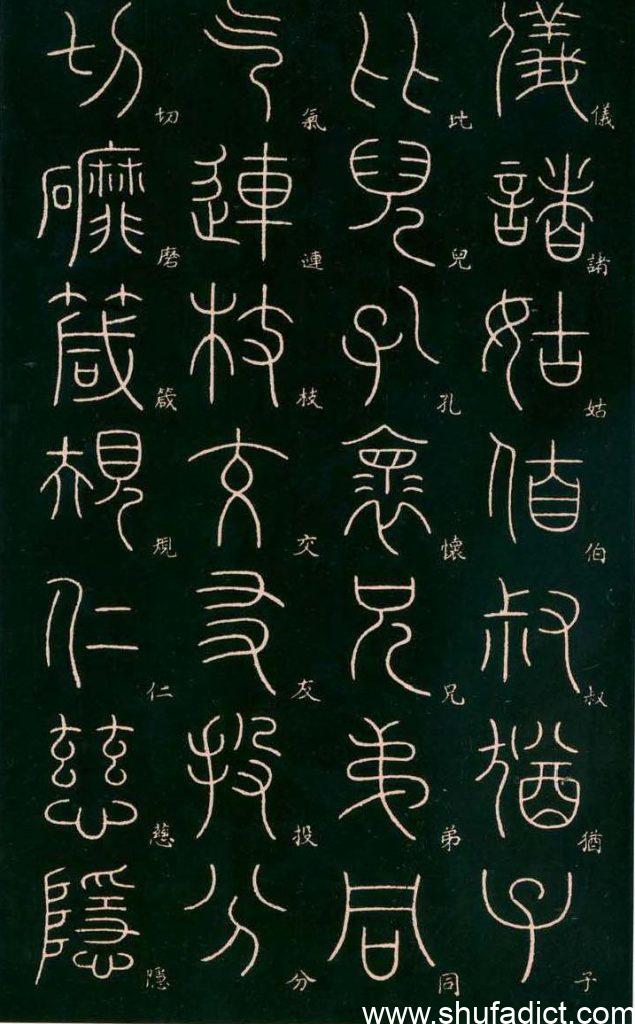 儀諸姑伯叔猶子
比兒孔懷兄弟同
氣連枝交友投分
切磨箴規仁慈隱
www.shufadict.com